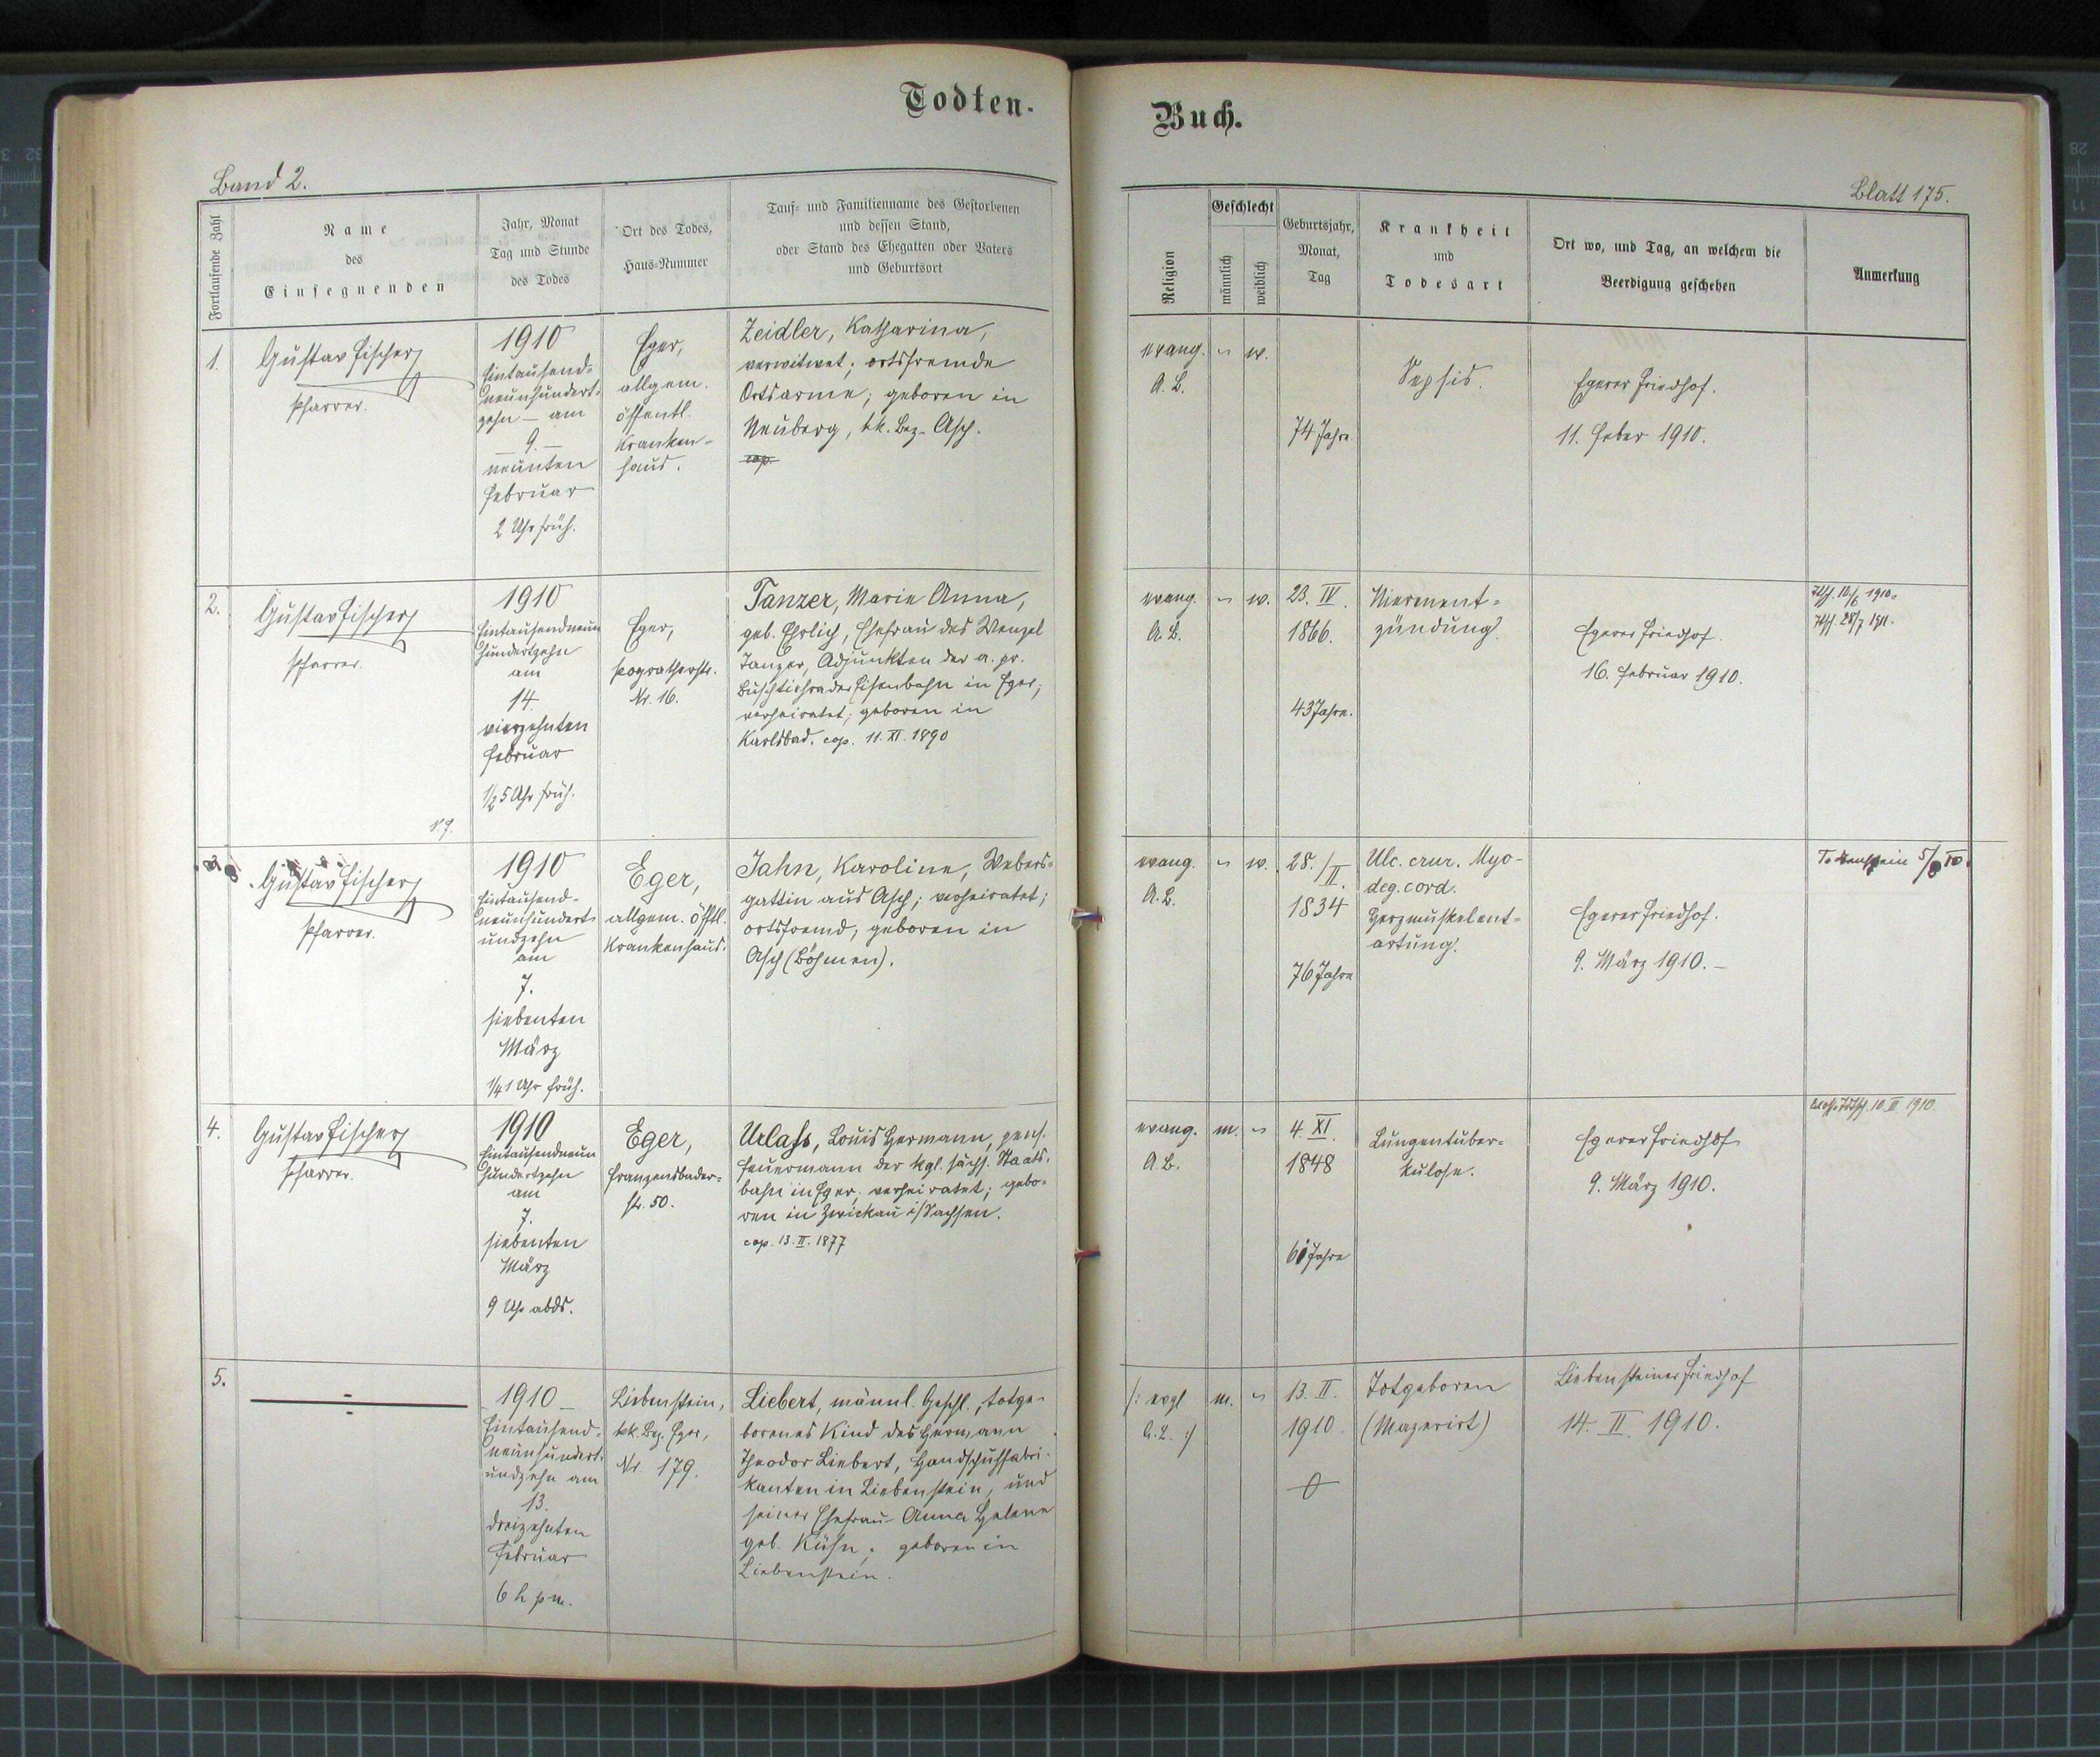 Todten-
Buch.
Band 2.
Blatt 175.
Fortlaufende Zahl
Name
des
Einsegnenden
Jahr, Monat
Tag und Stunde
des Todes
Ort des Todes,
Haus-Nummer
Tauf- und Familienname des Gestorbenen
und dessen Stand,
oder Stand des Ehegatten oder Vaters
und Geburtsort
Religion
Geschlecht
männlich
weiblich
Geburtsjahr,
Monat,
Tag
Krankheit
und
Todesart
Ort wo, und Tag, an welchem die
Beerdigung geschehen
Anmerkung
1.
Gustav Fischer
Pfarrer.
1910
Eintausend-
neunhundert-
zehn – am
– 9. –
neunten
Februar
2 Uhr früh.
Eger,
allgem.
öffentl.
Kranken-
haus.
Zeidler, Katharina,
verwitwet; ortsfremde
Ortsarme; geboren in
Neuberg, kk. Bez. Asch.
cop.
evang.
A. B.
w.
74 Jahre
Sepsis.
Egerer Friedhof.
11. Feber 1910.
2.
Gustav Fischer
Pfarrer.
1910
Eintausendneun
hundertzehn
am
14.
vierzehnten
Februar
1/2 5 Uhr früh.
Eger,
Pograthерstr.
Nr. 16.
Tanzer, Marie Anna,
geb. Ehrlich, Ehefrau des Wenzel
Tanzer, Adjunkten der a. pr.
Buschtiehrader Eisenbahn in Eger;
verheiratet; geboren in
Karlsbad. cop. 11. XI. 1890
evang.
A. B.
w.
23. IV.
1866.
43 Jahre.
Nierenent-
zündung.
Egerer Friedhof.
16. Februar 1910.
10/6 1910.
28/7 1911.
3.
Gustav Fischer
Pfarrer.
1910
Eintausend-
neunhundert-
undzehn
am
7.
siebenten
März
1/4 1 Uhr früh.
Eger,
allgem. öfftl.
Krankenhaus.
Jahn, Karoline, Webers-
gattin aus Asch; verheiratet;
ortsfremd; geboren in
Asch (Böhmen).
evang.
A. B.
w.
28./II.
1834
76 Jahre
Ulc. crur. Myo-
deg. cord.
Herzmuskelent-
artung.
Egerer Friedhof.
9. März 1910. –
4.
Gustav Fischer
Pfarrer.
1910
Eintausendneun
hundertzehn
am
7.
siebenten
März
9 Uhr abds.
Eger,
Franzensbader-
str. 50.
Urlass, Louis Hermann, pens.
Feuermann der kgl. sächs. Staats-
bahn in Eger; verheiratet; gebo-
ren in Zwickau i/Sachsen.
cop. 13. II. 1877
evang.
A. B.
m.
4. XI.
1848
61 Jahre
Lungentuber-
kulose.
Egerer Friedhof
9. März 1910.
1910
5.
1910 –
Eintausend-
neunhundert-
undzehn am
13.
dreizehnten
Februar
6 h pm.
Liebenstein,
kk. Bez. Eger,
Nr. 179.
Liebert, männl. Geschl., totge-
borenes Kind des Hermann
Theodor Liebert, Handschuhfabri-
kanten in Liebenstein, und
seiner Ehefrau Anna Helene
geb. Kühn; geboren in
Liebenstein.
/: evgl
A. B. :/
m.
13. II.
1910
Totgeboren
(Mazerirt)
Liebensteiner Friedhof
14. II. 1910.